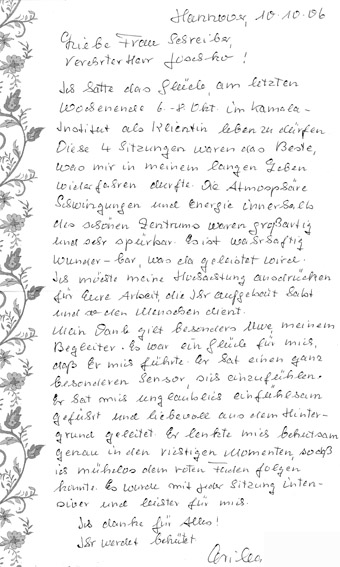 Hannover, 10.10.06
Liebe Frau Schreiber,
verehrter Herr !
Ich hatte das Glück, am letzten
Wochenende 6.-8. Okt. im Kamala-
Institut als Klientin leben zu dürfen
Diese 4 Sitzungen waren das Beste,
was mir in meinem langen Leben
widerfahren durfte. Die Atmosphäre
Schwingungen und Energie innerhalb
des schönen Zentrums waren großartig
und sehr spürbar. Es ist wahrhaftig
wunder-bar, was da geleistet wird.
Ich möchte meine Hochachtung ausdrücken
für Eure Arbeit, die Ihr aufgebaut habt
und so den Menschen dient.
Mein Dank gilt besonders Uwe, meinem
Begleiter. Es war ein Glück für mich,
daß Er mich führte. Er hat einen ganz
besonderen Sensor, sich einzufühlen.
Er hat mich unglaublich einfühlsam
geführt und liebevoll aus dem Hinter-
grund geleitet. Er lenkte mich behutsam
genau in den richtigen Momenten, sodaß
ich mühelos dem roten Faden folgen
konnte. Es wurde mit jeder Sitzung inten-
siver und leichter für mich.
Ich danke für Alles!
Ihr werdet behütet